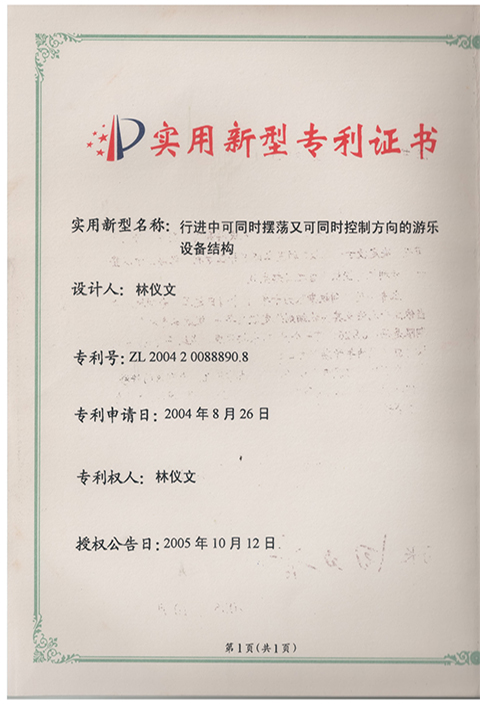 实用新型专利证书
实用新型名称：行进中可同时摆荡又可同时控制方向的游乐
设备结构
设计人：林仪文
专利号：ZL 2004 2 0088890.8
专利申请日：2004 年 8 月 26 日
专利权人：林仪文
授权公告日：2005 年 10 月 12 日
第 1 页 (共 1 页)